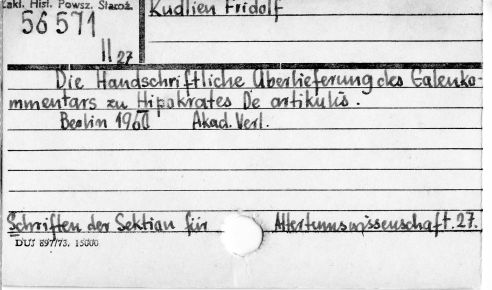 Zakł. Hist. Powsz. Staroż.
56571
II 27
Kudlien Fridolf
Die Handschriftliche Überlieferung des Galenko-
mmentars zu Hipokrates De artikulis.
Berlin 1960 Akad. Verl.
Schriften der Sektion für Altertumswissenschaft. 27.
DUJ 897/73. 15000